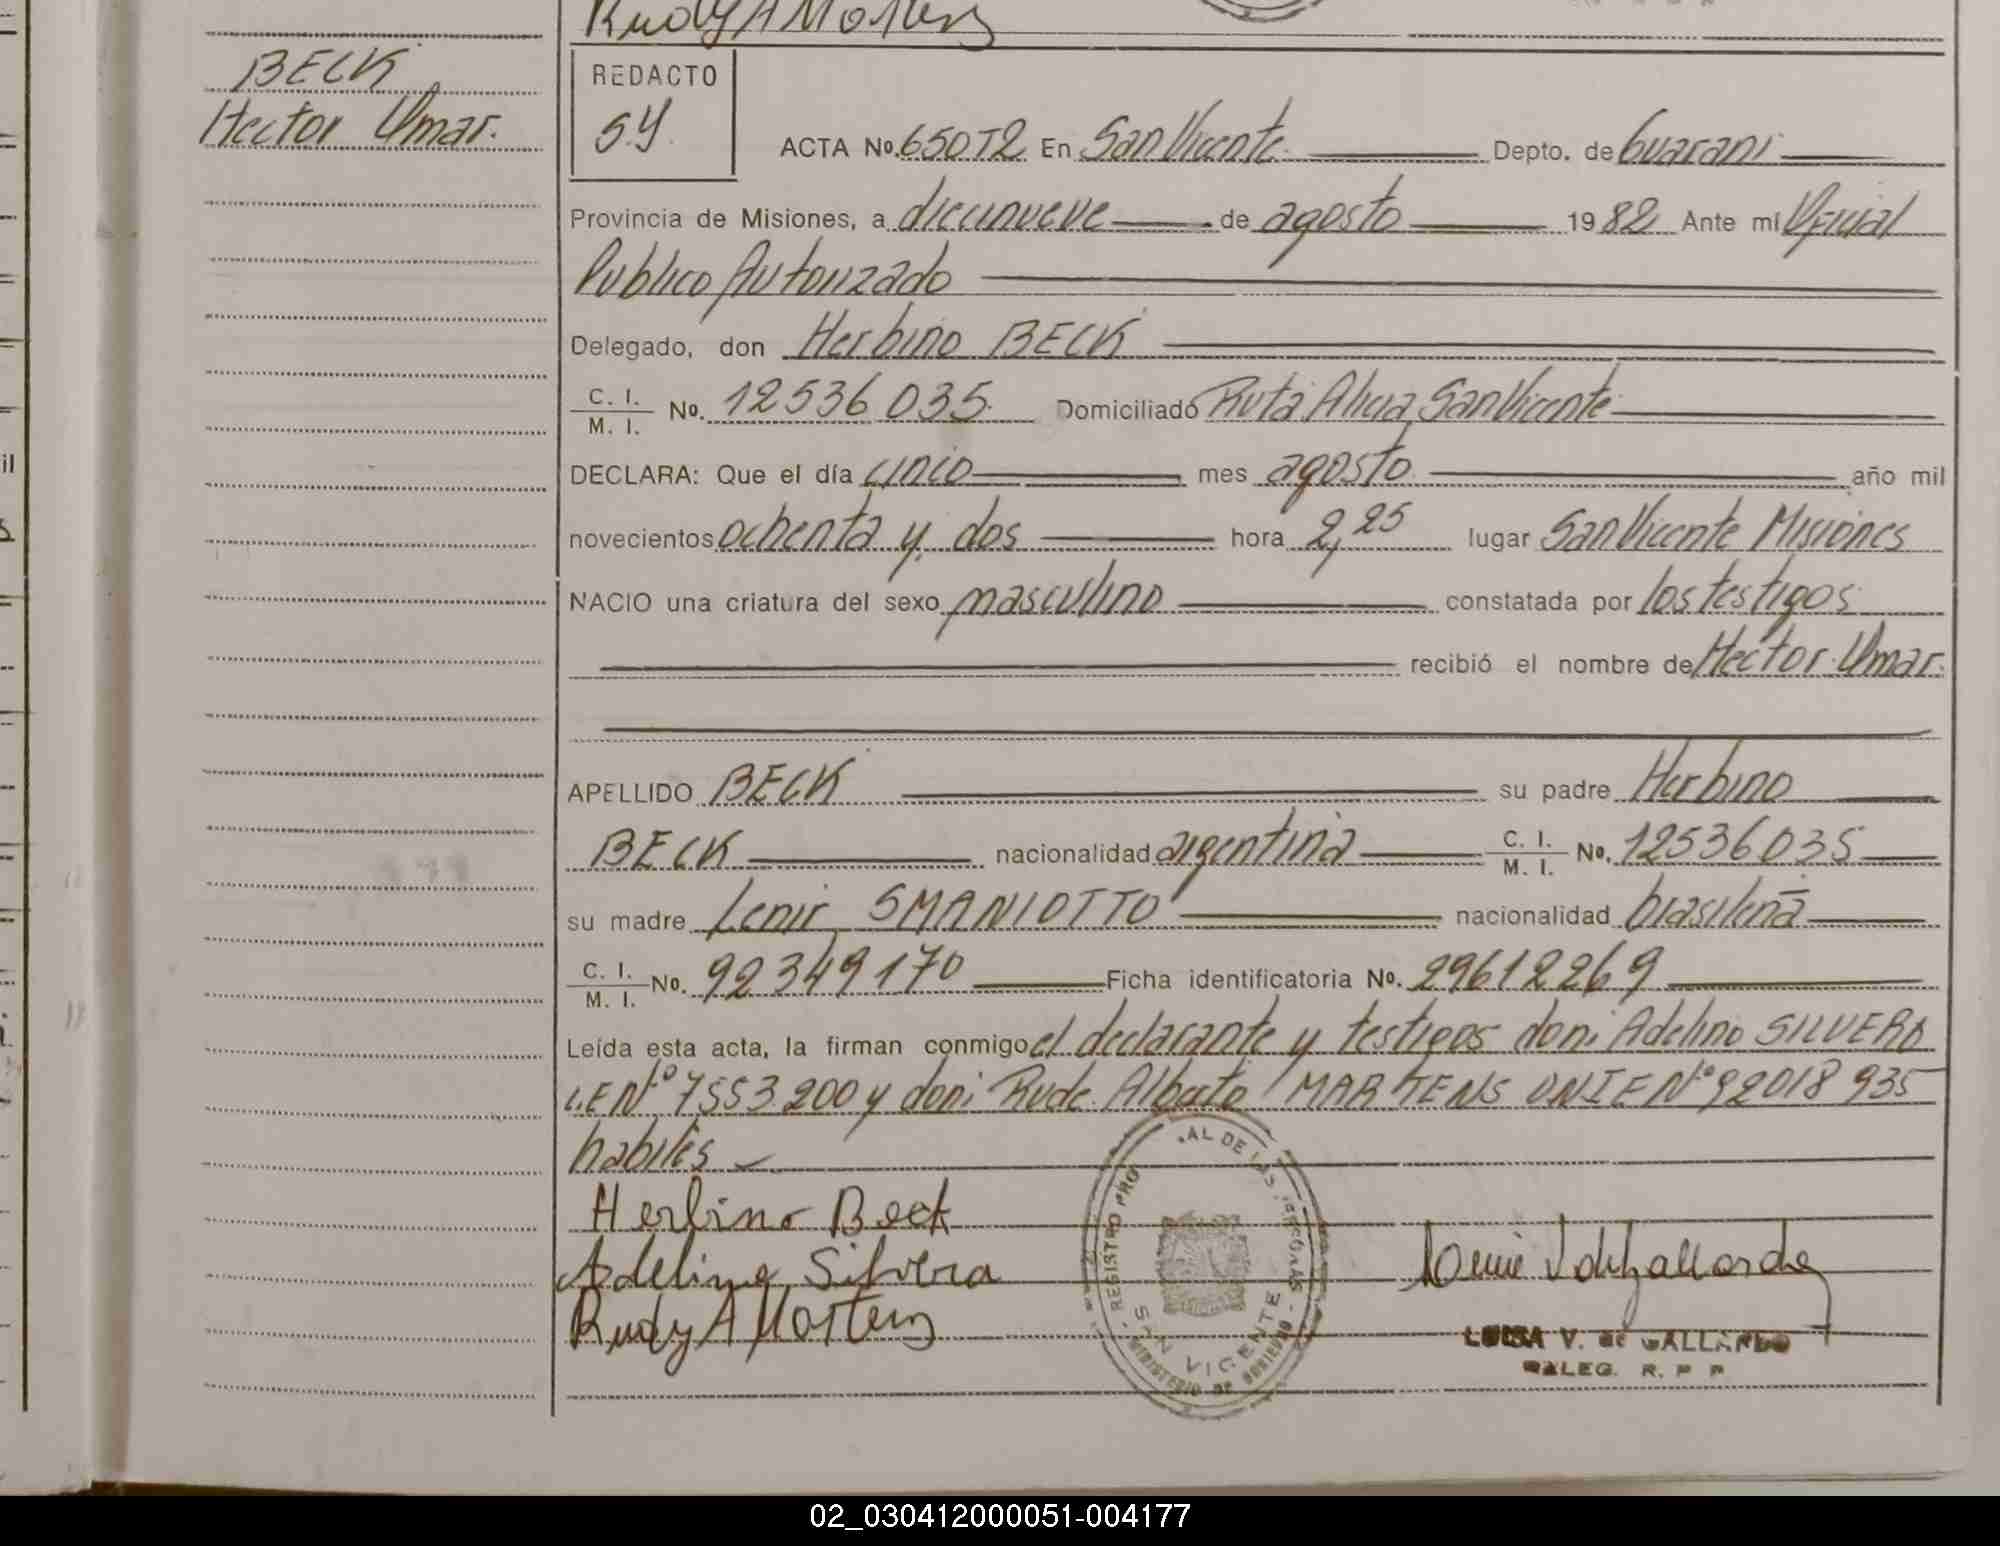 Rudy A Martens
BECK
Hector Omar.
REDACTO
S.Y.
ACTA No. 650T2 En San Vicente Depto. de Guarani
Provincia de Misiones, a diecinueve de agosto 1982 Ante mí Oficial
Publico Autorizado
Delegado, don Herbino BECK
C. I.
M. I. No. 12536035 Domiciliado Ruta Alicia, San Vicente
DECLARA: Que el día cinco mes agosto año mil
novecientos ochenta y dos hora 2,25 lugar San Vicente Misiones
NACIO una criatura del sexo masculino constatada por los testigos
recibió el nombre de Hector Omar.
APELLIDO BECK su padre Herbino
BECK nacionalidad argentina C. I.
M. I. No. 12536035
su madre Lenir SMANIOTTO nacionalidad brasileña
C. I.
M. I. No. 92349170 Ficha identificatoria No. 29612269
Leída esta acta, la firman conmigo el declarante y testigos don: Adelino SILVERA
L.E Nº 7553.200 y don: Rude Alberto MARTENS DNIE Nº 92018935
habiles
Herbino Beck
Adelino Silvera
Rudy A Martens
REGISTRO PRO AL DE LAS PERSONAS
SAN VICENTE
MINISTERIO DE GOBIERNO
LUISA V. de GALLARDO
DALEG. R. P P
02_030412000051-004177